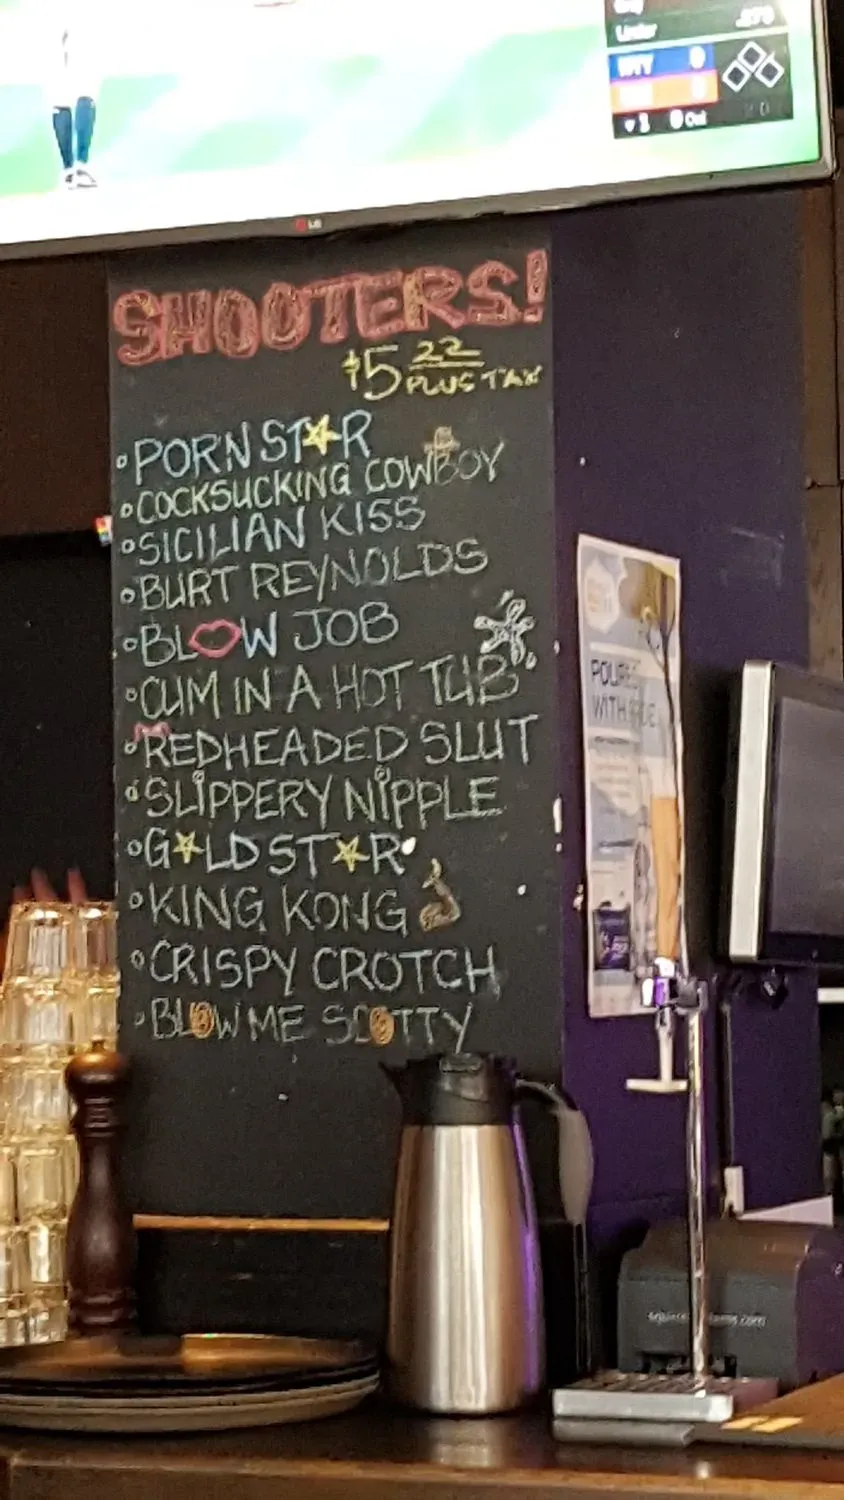 NYY 0
0
▼ 1 0 Out
LG
SHOOTERS!
$5 22
PLUS TAX
PORNSTAR
COCKSUCKING COWBOY
SICILIAN KISS
BURT REYNOLDS
BLOW JOB
CUM IN A HOT TUB
REDHEADED SLUT
SLIPPERY NIPPLE
GOLD STAR
KING KONG
CRISPY CROTCH
BLOW ME SCOTTY
POURED
WITH PRIDE